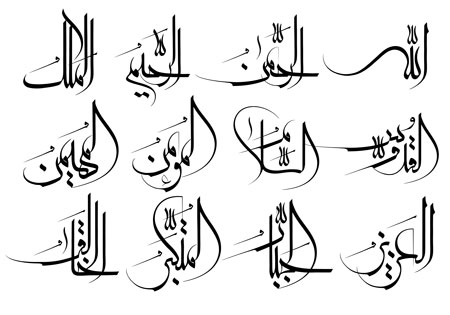 الله الرحمن الرحيم الملك
القدوس السلام المؤمن المهيمن
العزيز الجبار المتكبر الخالق